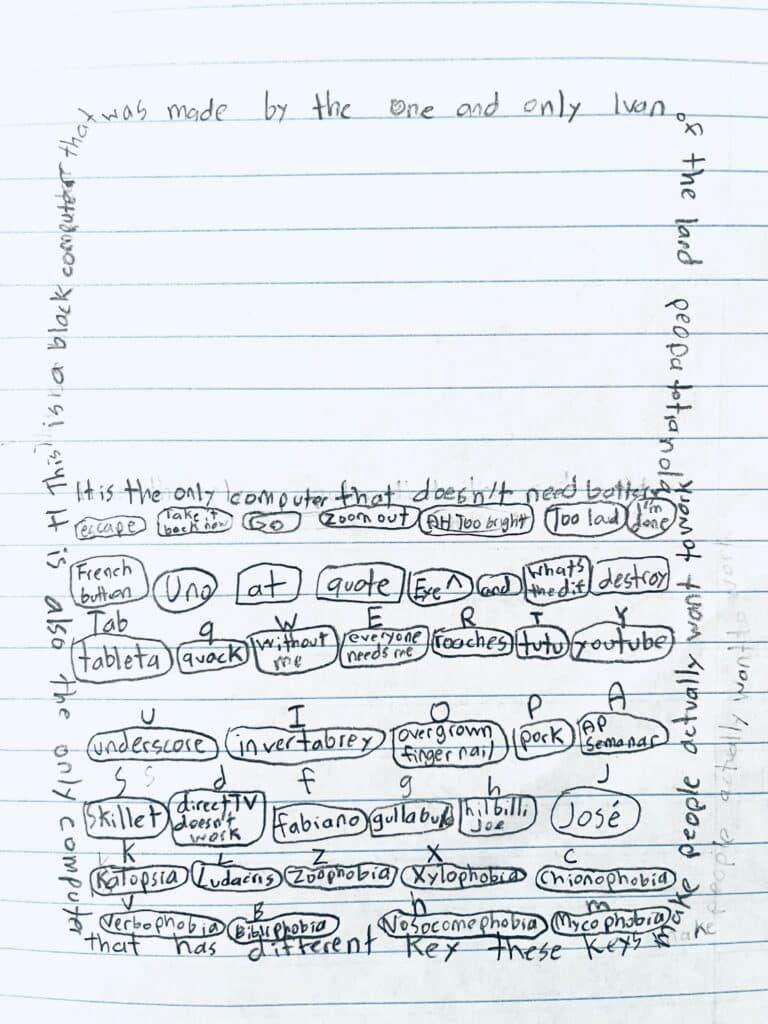 This is a black computer that
was made by the one and only Ivan
of the land
It is the only computer that doesn't need battery
escape Take it back now Go Zoom out AH Too bright Too lad I'm done
French button Uno at quote Eye ^ and What's the dif destroy
Tab q W E R T Y
tableta quack without me everyone needs me roaches tutu youtube
U I O P A
underscore invertabrey overgrown finger nail pork AP semanar
S S d f g h J
skillet direct TV doesn't work fabiano hillbilli Joe José
K L Z X C
Katopsia Ludacris Zoophobia Xylophobia Chionophobia
V B n m
Verbophobia Bibliphobia Nosocomephobia Mycophobia
It is also the only computer
that has different key these keys
make people actually want to work
make people actually want to work